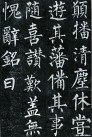 願播清塵休嘗
遊其藩備其事
隨喜讚歎蓋無
愧辭銘曰